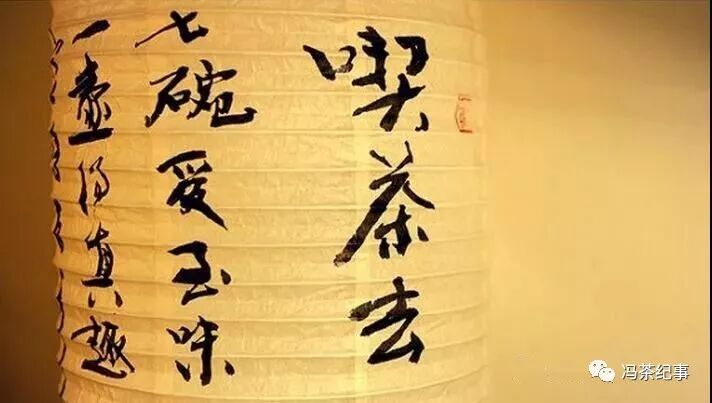 喫茶去
七碗受至味
一壺得真趣
冯茶纪事